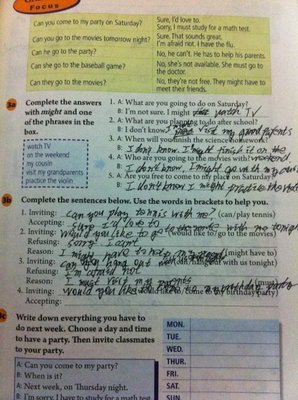 Focus
Can you come to my party on Saturday?
Sure, I'd love to.
Sorry, I must study for a math test.
Can you go to the movies tomorrow night?
Sure. That sounds great.
I'm afraid not. I have the flu.
Can he go to the party?
No, he can't. He has to help his parents.
Can she go to the baseball game?
No, she's not available. She must go to
the doctor.
Can they go to the movies?
No, they're not free. They might have to
meet their friends.
3a Complete the answers
with might and one
of the phrases in the
box.
watch TV
on the weekend
my cousin
visit my grandparents
practice the violin
1. A: What are you going to do on Saturday?
B: I'm not sure. I might watch TV
2. A: What are you planning to do after school?
B: I don't know. visit my grandparents
3. A: When will you finish the science homework?
B: I don't know. I might finish it on the
weekend.
4. A: Who are you going to the movies with?
B: I don't know, I might go with my cousin
5. A: Are you free to come to my place on Saturday?
B: I don't know I might practice the
3b Complete the sentences below. Use the words in brackets to help you.
1. Inviting: can you play tennis with me? (can/play tennis)
Accepting: Sure, I'd love to
2. Inviting: Would you like to go to the movie with me tonight (would like to/go to the movies)
Refusing: Sorry I can't
Reason: I might have to (might have to)
3. Inviting: can you hang out with us tonight (can/hang out with us tonight)
Refusing: I'm afraid not
Reason: I must visit my parents (must)
4. Inviting: Would you like to come to my birthday party
Accepting:
3c Write down everything you have to
do next week. Choose a day and time
to have a party. Then invite classmates
to your party.
A: Can you come to my party?
B: When is it?
A: Next week, on Thursday night.
B: I'm sorry. I have to study for a math test.
MON.
TUE.
WED.
THUR.
FRI.
SAT.
SUN.